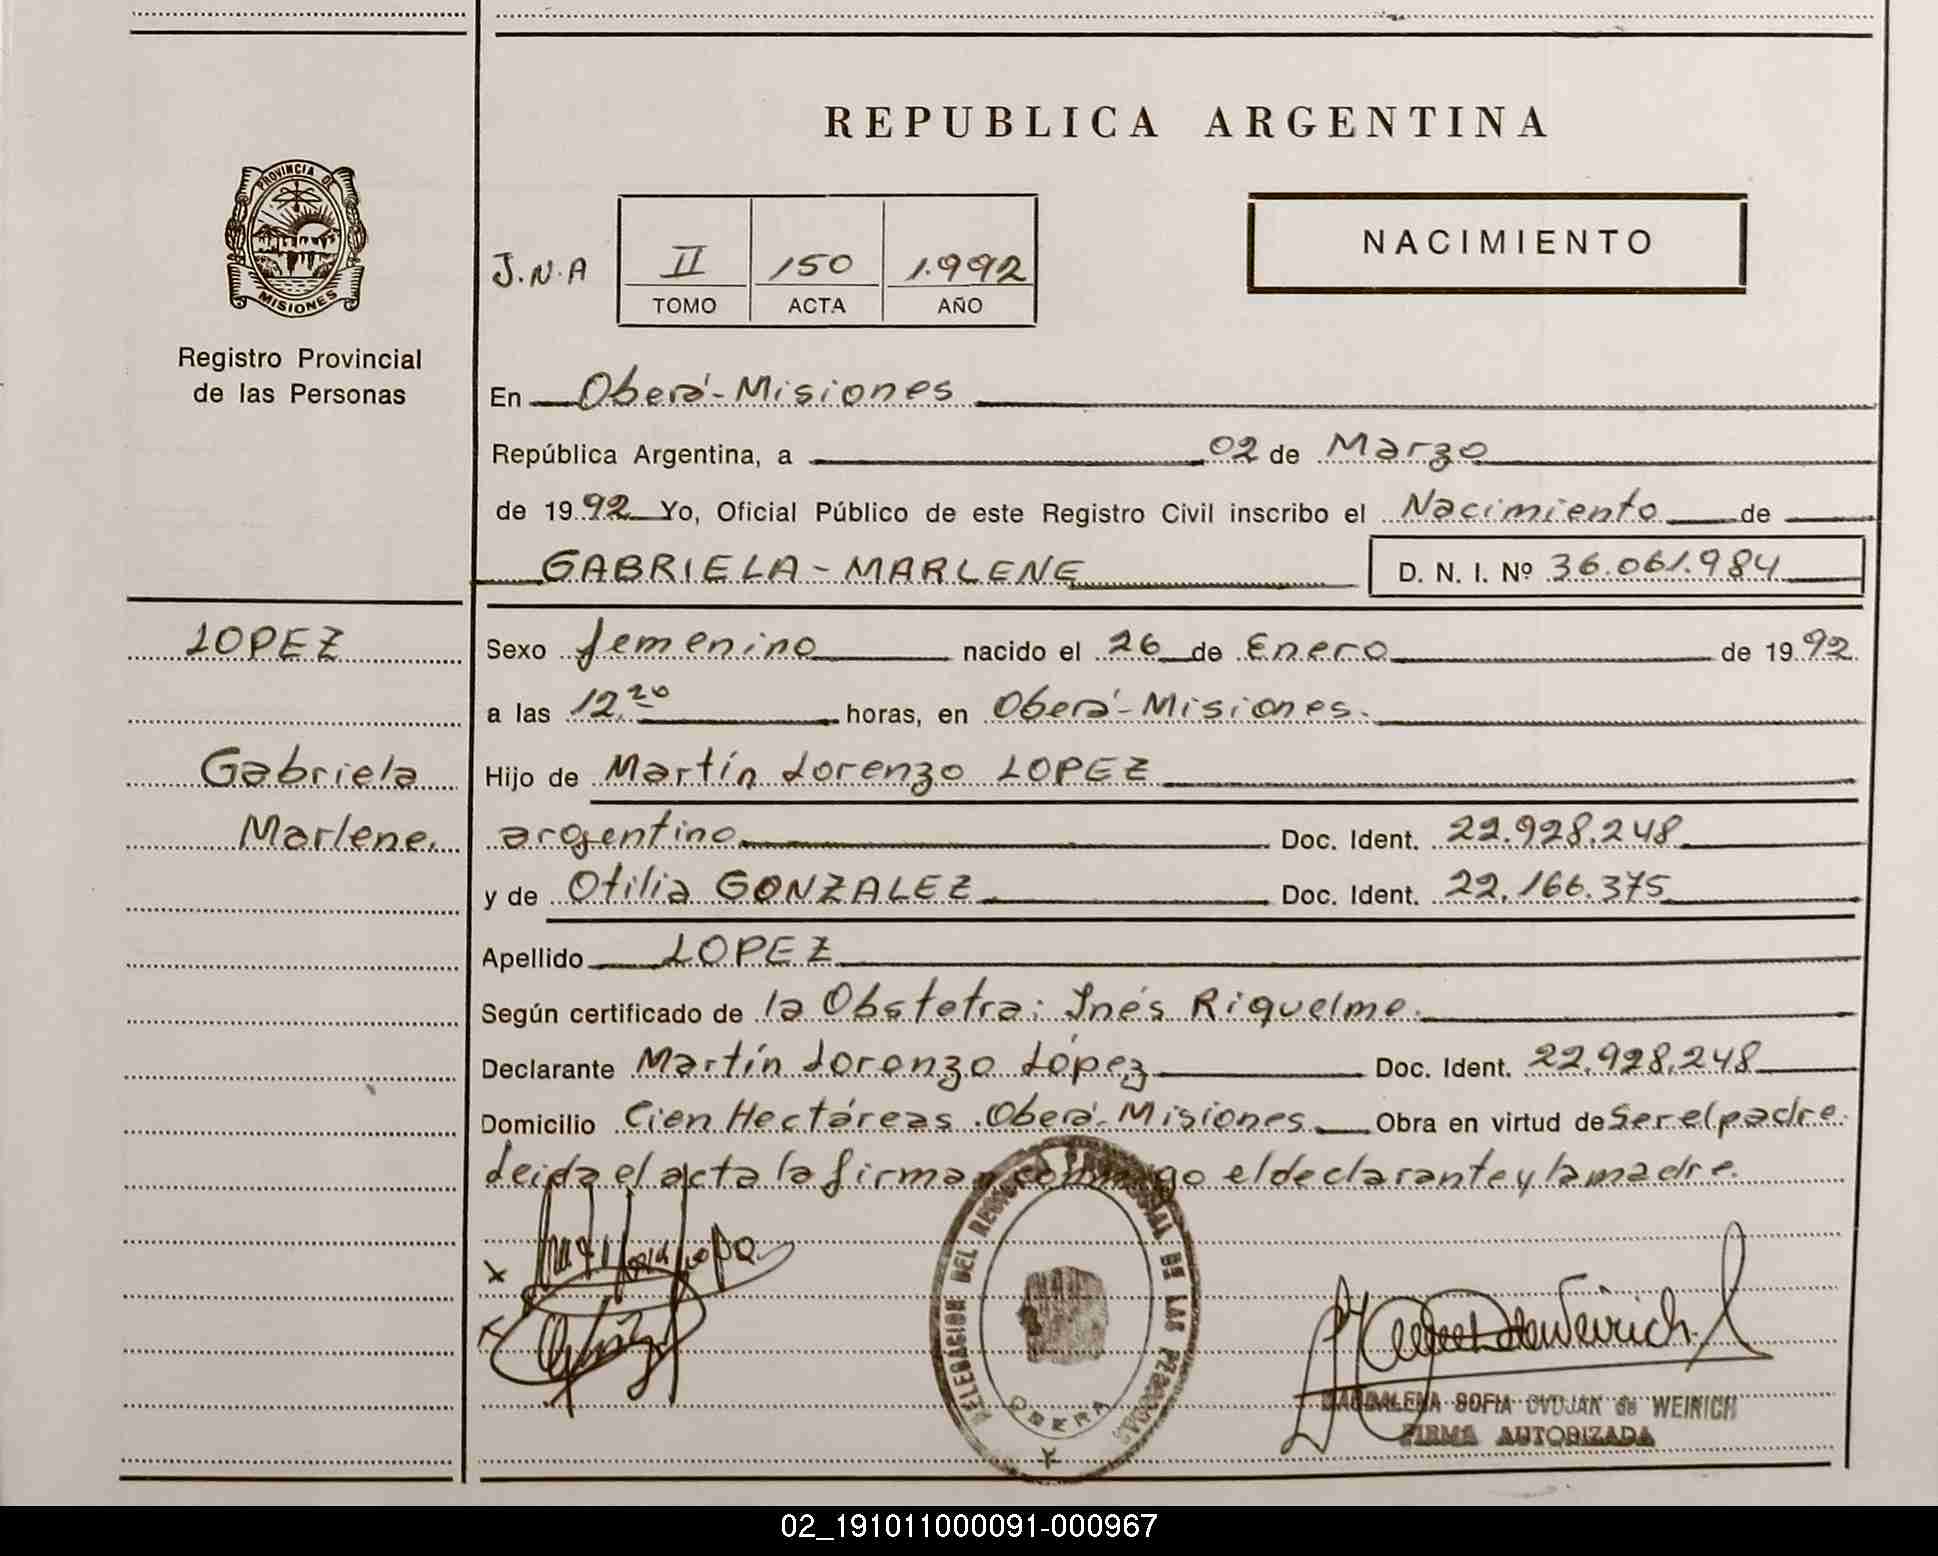 REPUBLICA ARGENTINA
PROVINCIA DE
MISIONES
Registro Provincial
de las Personas
NACIMIENTO
J.N.A II 150 1.992
TOMO ACTA AÑO
En Oberá-Misiones
República Argentina, a 02 de Marzo
de 1992 Yo, Oficial Público de este Registro Civil inscribo el Nacimiento de
GABRIELA-MARLENE D. N. I. Nº 36.061.984
LOPEZ
Gabriela
Marlene.
Sexo femenino nacido el 26 de Enero de 1992
a las 12.20 horas, en Oberá-Misiones.
Hijo de Martín Lorenzo LOPEZ
argentino Doc. Ident. 22.928.248
y de Otilia GONZALEZ Doc. Ident. 22.166.375
Apellido LOPEZ
Según certificado de la Obstetra: Inés Riquelme.
Declarante Martín Lorenzo López Doc. Ident. 22.928.248
Domicilio Cien Hectáreas. Oberá-Misiones Obra en virtud de Ser el padre.
Leida el acta la firman conmigo el declarante y la madre.
DELEGACION DEL REGISTRO PROVINCIAL DE LAS PERSONAS
OBERA
MAGDALENA SOFIA OVDJAK de WEIRICH
FIRMA AUTORIZADA
02_191011000091-000967